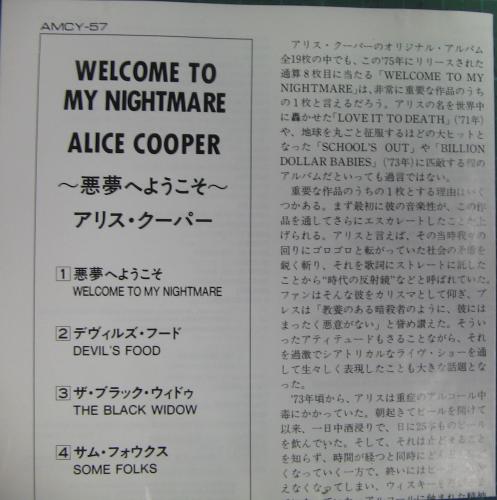 AMCY-57
WELCOME TO
MY NIGHTMARE
ALICE COOPER
～悪夢へようこそ～
アリス・クーパー
1 悪夢へようこそ
WELCOME TO MY NIGHTMARE
2 デヴィルズ・フード
DEVIL'S FOOD
3 ザ・ブラック・ウィドゥ
THE BLACK WIDOW
4 サム・フォウクス
SOME FOLKS
アリス・クーパーのオリジナル・アルバム
全19枚の中でも、この'75年にリリースされた
通算8枚目に当たる「WELCOME TO MY
NIGHTMARE」は、非常に重要な作品のうち
の1枚と言えるだろう。アリスの名を世界中
に轟かせた「LOVE IT TO DEATH」('71年)
や、地球を丸ごと征服するほどの大ヒットと
なった「SCHOOL'S OUT」や「BILLION
DOLLAR BABIES」('73年)に匹敵する程の
アルバムだといっても過言ではない。
重要な作品のうちの1枚とする理由はいく
つかある。まず最初に彼の音楽性が、この作
品を通してさらにエスカレートしたことが上
げられる。アリスと言えば、その当時我々の
回りにゴロゴロと転がっていた社会の矛盾を
鋭く斬り、それを歌詞にストレートに託した
ことから“時代の反射鏡”などと呼ばれていた。
ファンはそんな彼をカリスマとして仰ぎ、プ
レスは「教養のある暗殺者のように、彼には
まったく悪意がない」と誉め讃えた。そうい
ったアティテュードもさることながら、それ
を過激でシアトリカルなライヴ・ショーを通
して生々しく表現したことも大きな話題とな
った。
'73年頃から、アリスは重症のアルコール中
毒にかかっていた。朝起きてビールを開けて
以来、一日中酒浸りで、日に25本ものビール
を飲んでいた。そして、それは止どまること
を知らず、時間が経つと同時にどんどん
くなっていく一方で、終いにはビ
えなくなってしまい、ウィスキーを